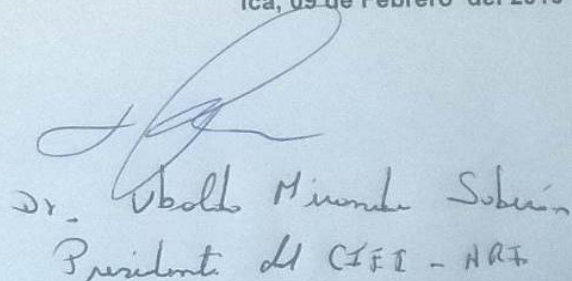 Ica, 09 de Febrero del 2010
Dr. Ubaldo Miranda Soberón
Presidente del CIEI - HRI